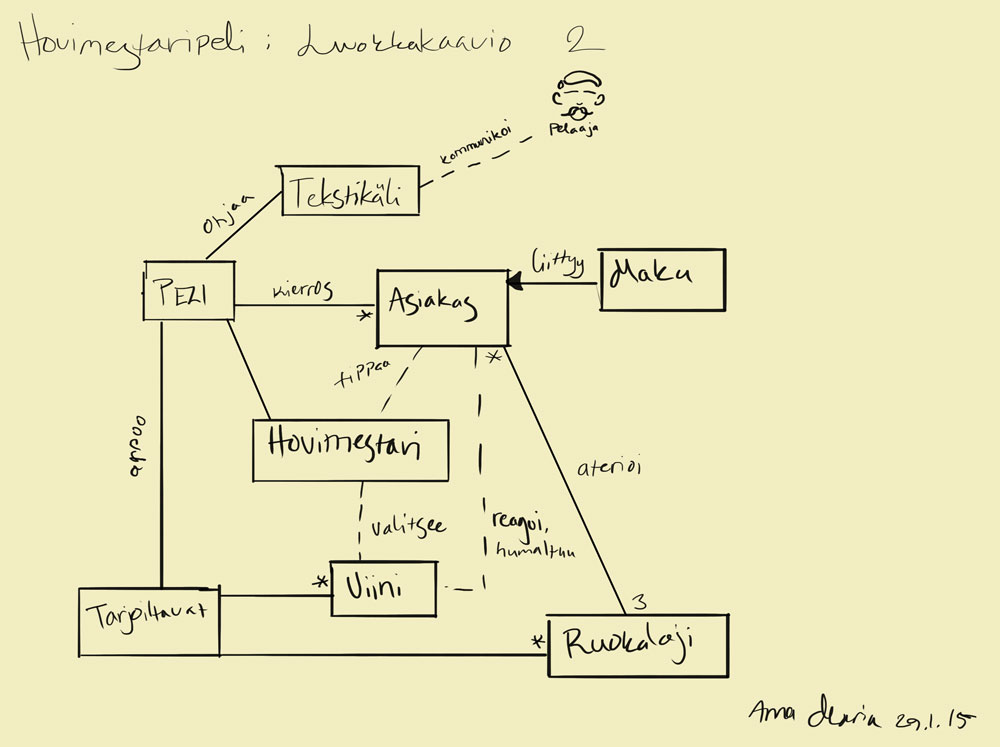 Hovimestaripeli : Luokkakaavio 2
Pelaaja
kommunikoi
Tekstikäli
ohjaa
PELI
kierros
*
Asiakas
liittyy
Maku
*
tippaa
Hovimestari
oppii
aterioi
valitsee
reagoi,
humaltuu
*
Viini
Tarjoiltavat
3
*
Ruokalaji
Anna Maria 29.1.15